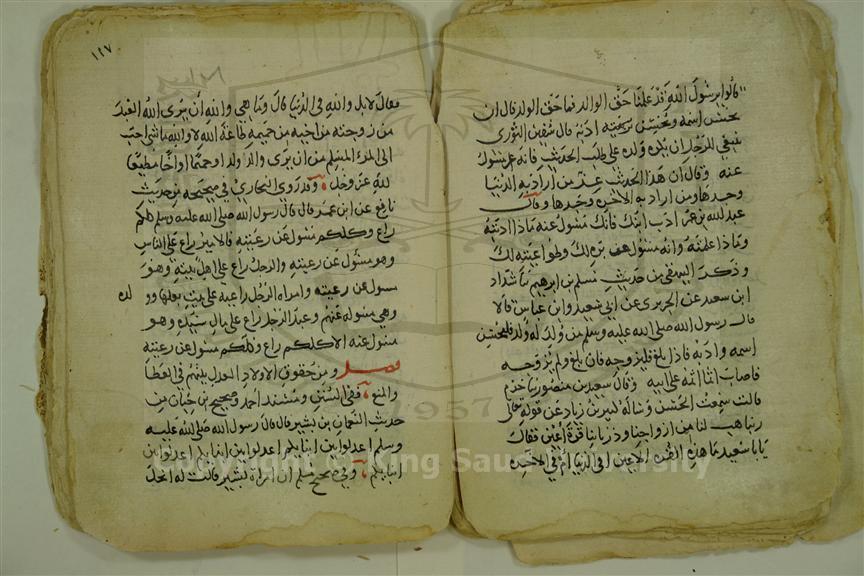 قالوا يرسول الله قد علمنا حق الوالد فما حق الولد قال ان
يحسن اسمه ويحسن تربيته ادبه قال سفين الثوري
ينبغي للرجل ان يكره ولده على طلب الحديث فانه مسئول
عنه وقال ان هذا الحديث عز من اراد به الدنيا
وجدها ومن اراد به الاخرة وجدها وقال
عبد الله بن عمر ادب ابنك فانك مسئول عنه ماذا ادبته
وماذا علمته وانه مسئول عن برك لك وطواعيته لك
وذكر البيهقي من حديث مسلم بن ابرهيم ثنا شداد
ابن سعيد عن الجريري عن ابي سعيد وابن عباس قالا
قال رسول الله صلى الله عليه وسلم من ولد له ولد فليحسن
اسمه وادبه فاذا بلغ فليزوجه فان بلغ ولم يزوجه
فاصاب اثما اثمه على ابيه وقال سعيد بن منصور ثنا حزم
قالت سمعت الحسن وساله كثير بن زياد عن قوله تعالى
ربنا هب لنا من ازواجنا وذرياتنا قرة اعين فقال
يابا سعيد ما هذه القرة الاعين افي الدنيا ام في الاخرة
١٢٧
فقال لا بل والله في الدنيا قال وما هي والله ان يرى الله العبد
من زوجته من اخيه من حميمه طاعة الله لا والله ما شي احب
الى المرء المسلم من ان يرى والدا او ولدا او حميما او اخا مطيعا
لله عز وجل وقد روى البخاري في صحيحه من حديث
نافع عن ابن عمر قال قال رسول الله صلى الله عليه وسلم كلكم
راع وكلكم مسئول عن رعيته فالامير راع على الناس
وهو مسئول عن رعيته والرجل راع على اهل بيته وهو
مسول عن رعيته وامراه الرجل راعيه على بيت بعلها وو لده
وهي مسئوله عنهم وعبد الرجل راع على مال سيده وهو
مسئول عنه الا كلكم راع وكلكم مسئول عن رعيته
فصل ومن حقوق الاولاد العدل بينهم في العطا
والمنع ففي السنن ومسند احمد وصحيح بن حبان من
حديث النعمان بن بشير قال قال رسول الله صلى الله عليه
وسلم اعدلوا بين ابنايكم اعدلوا بين ابنايكم اعدلوا بين
ابنايكم وفي صحيح مسلم ان امراة بشير قالت له انحل
Copyright © King Saud University
1957